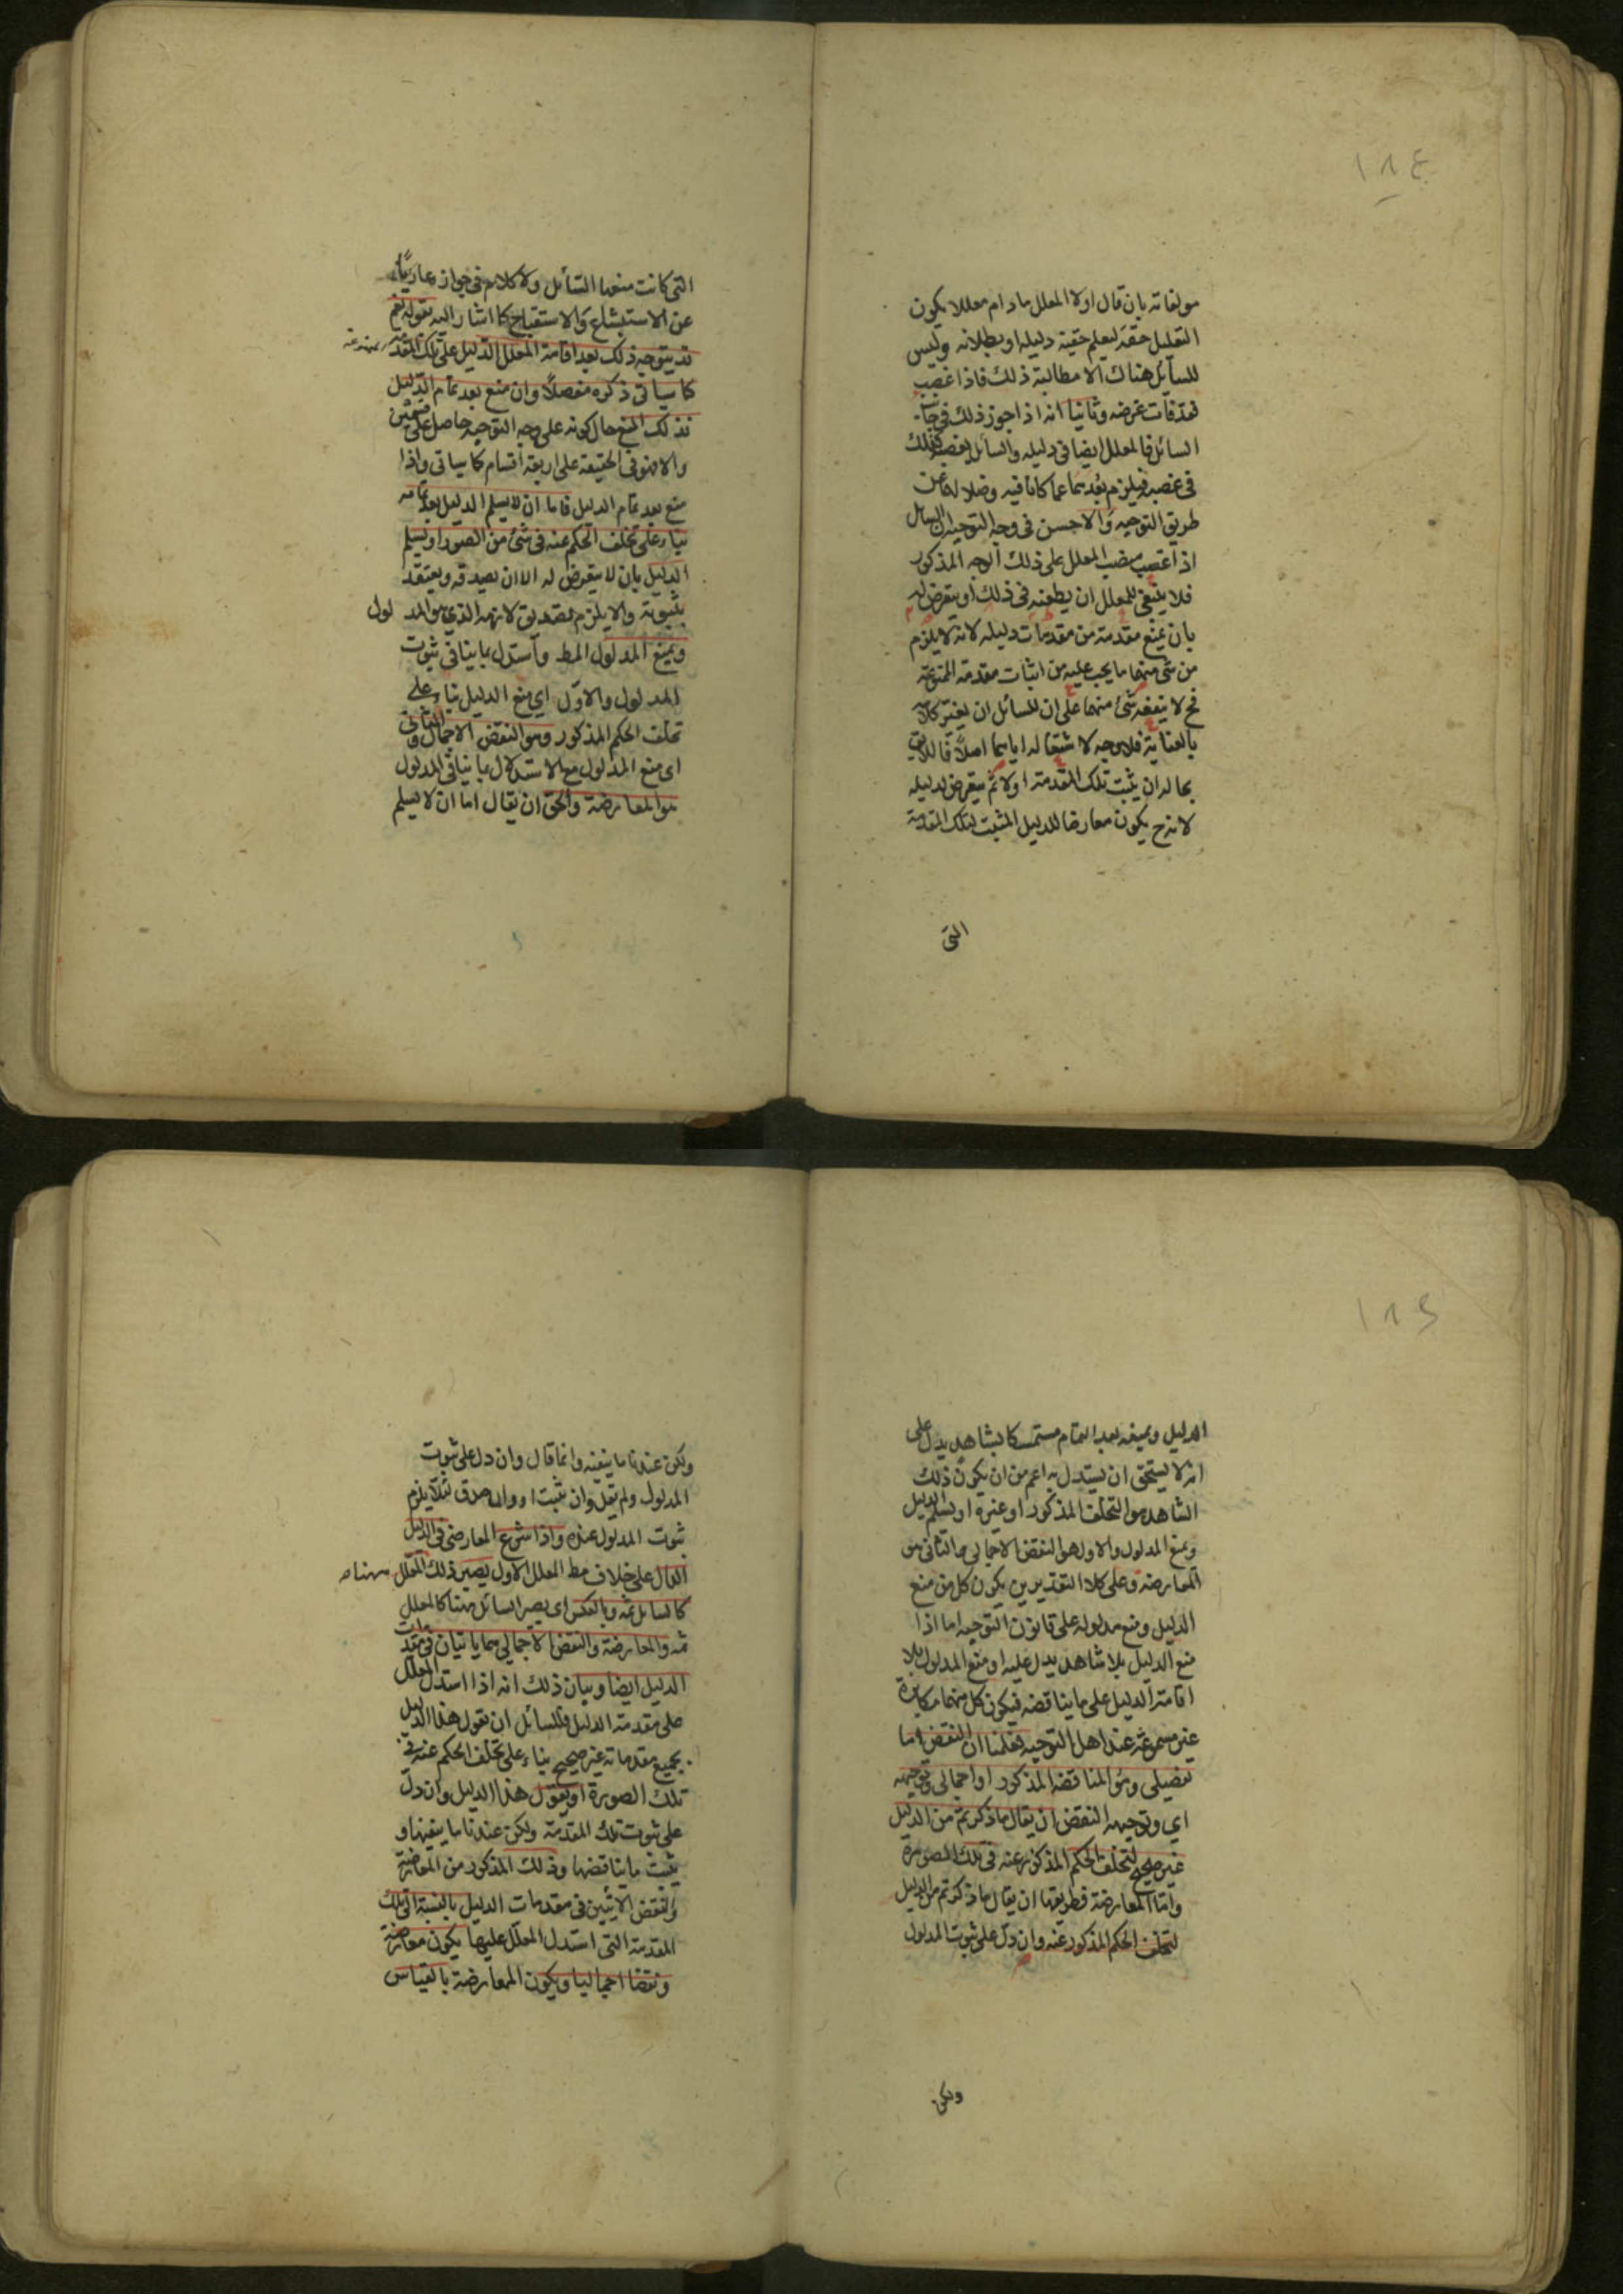 ١٨٤
مولفاته بان قال اولا المعلل مادام معللا يكون
التعليل حقه ليعلم حقية دليله او بطلانه وليس
للسائل هناك الا مطالبة ذلك فاذا غصب
فقد فات غرضه وثانيا انه اذا جوز ذلك في جانب
السائل فالمعلل ايضا في دليله والسائل يغصب كذلك
في غصبه فيلزم بعدهما عما كانا فيه وضلالهما عن
طريق التوجيه والاحسن في وجه التوجيه ان السائل
اذا غصب منصب المعلل على ذلك الوجه المذكور
فلا ينبغي للمعلل ان يطعنه في ذلك او يتعرض له
بان يمنع مقدمة من مقدمات دليله لانه لا يلزم
من شئ منهما ما يجب عليه من اثبات مقدمته الممنوعة
فح لا ينفعه شئ منهما على ان للسائل ان يغير كلامه
بالعناية فلا وجه لاشتغاله اياهما اصلا فاللايق
بحاله ان يثبت تلك المقدمة اولا ثم يتعرض لدليله
لانه ح يكون معارضا للدليل المثبت لتلك المقدمة
التى
التى كانت منعها السائل ولا كلام في جوازه عاريا
عن الاستبشاع والاستقباح كما اشار اليه بقوله نعم
قد يتوجه ذلك بعد اقامة المعلل الدليل على تلك المقدمة
كما سياتى ذكره مفصلا وان منع بعد تمام الدليل
فذلك المنع حال كونه على وجه التوجيه حاصل على قسمين
والا فهو في الحقيقة على اربعة اقسام كما سياتى واذا
منع بعد تمام الدليل فاما ان لا يسلم الدليل بعد تمامه
بناء على تخلف الحكم عنه في شئ من الصور او يسلم
الدليل بان لا يتعرض له الا ان يصدقه ويعتقد
بثبوته والا يلزم تصديق لازمه الذي هو المدلول
ويمنع المدلول المط واستدل بما ينافي ثبوت
المدلول والاول اي منع الدليل بناء على
تخلف الحكم المذكور وهو النقض الاجمالي والثاني
اى منع المدلول مع الاستدلال بما ينافي المدلول
هو المعارضة والحق ان يقال اما ان لا يسلم
١٨٥
الدليل ويمنعه بعد التمام مستمسكا بشاهد يدل على
انه لا يستحق ان يستدل به اعم من ان يكون ذلك
الشاهد هو التخلف المذكور او غيره او يسلم الدليل
ويمنع المدلول والاول هو النقض الاجمالى والثانى هو
المعارضة وعلى كلا التقديرين يكون كل من منع
الدليل ومنع مدلوله على قانون التوجيه اما اذا
منع الدليل بلا شاهد يدل عليه او منع المدلول بلا
اقامة الدليل على ما يناقضه فيكون كل منهما مكابرة
غير مسموعة عند اهل التوجيه فعلمنا ان النقض اما
تفصيلى وهو المناقضة المذكور او اجمالى وتوجيهه
اي وتوجيه النقض ان يقال ما ذكرتم من الدليل
غير صحيح لتخلف الحكم المذكور عنه في تلك الصورة
واما المعارضة فطريقها ان يقال ما ذكرتم من الدليل
لتخلف الحكم المذكور عنه وان دل على ثبوت المدلول
ولكن
ولكن عندنا ما ينفيه وانما قال وان دل على ثبوت
المدلول ولم يقل وان يثبت او وان صدق لئلا يلزم
ثبوت المدلول عنده واذا شرع المعارض في الدليل
الدال على خلاف مط المعلل الاول يصير ذلك المعلل ههنا
كالسائل ثمه وبالعكس اى يصير السائل ههنا كالمعلل
ثمه والمعارضة والنقض الاجمالي هما ياتيان في مقدمات
الدليل ايضا وبيان ذلك انه اذا استدل المعلل
على مقدمة الدليل فللسائل ان يقول هذا الدليل
بجميع مقدماته غير صحيح بناء على تخلف الحكم عنه في
تلك الصورة او يقول هذا الدليل وان دل
على ثبوت تلك المقدمة ولكن عندنا ما ينفيها و
يثبت ما يناقضها وذلك المذكور من المعارضة
والنقض الاتيين في مقدمات الدليل بالنسبة الى تلك
المقدمة التى استدل المعلل عليها يكون معارضة
ونقضا اجماليا ويكون المعارضة بالقياس